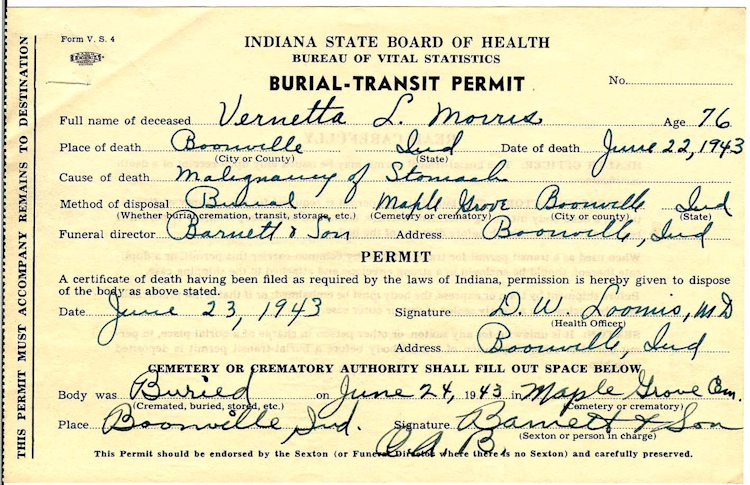 Form V. S. 4
INDIANA STATE BOARD OF HEALTH
BUREAU OF VITAL STATISTICS
BURIAL-TRANSIT PERMIT
No.
Full name of deceased Vernetta L. Morris Age 76
Place of death Boonville Ind Date of death June 22, 1943
(City or County) (State)
Cause of death Malignancy of Stomach
Method of disposal Burial Maple Grove Boonville Ind
(Whether burial, cremation, transit, storage, etc.) (Cemetery or crematory) (City or county) (State)
Funeral director Barnett & Son Address Boonville, Ind
PERMIT
A certificate of death having been filed as required by the laws of Indiana, permission is hereby given to dispose
of the body as above stated.
Date June 23, 1943 Signature D. W. Loomis, MD
(Health Officer)
Address Boonville, Ind
CEMETERY OR CREMATORY AUTHORITY SHALL FILL OUT SPACE BELOW
Body was Buried on June 24, 1943 in Maple Grove Cem.
(Cremated, buried, stored, etc.) (Cemetery or crematory)
Place Boonville, Ind. Signature Barnett & Son
(Sexton or person in charge)
This Permit should be endorsed by the Sexton (or Funeral Director where there is no Sexton) and carefully preserved.
THIS PERMIT MUST ACCOMPANY REMAINS TO DESTINATION